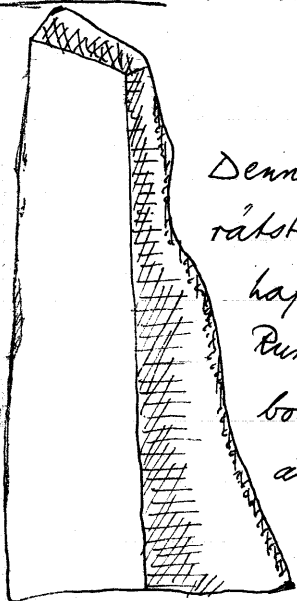 Denn
råtst
hap
Run
bo